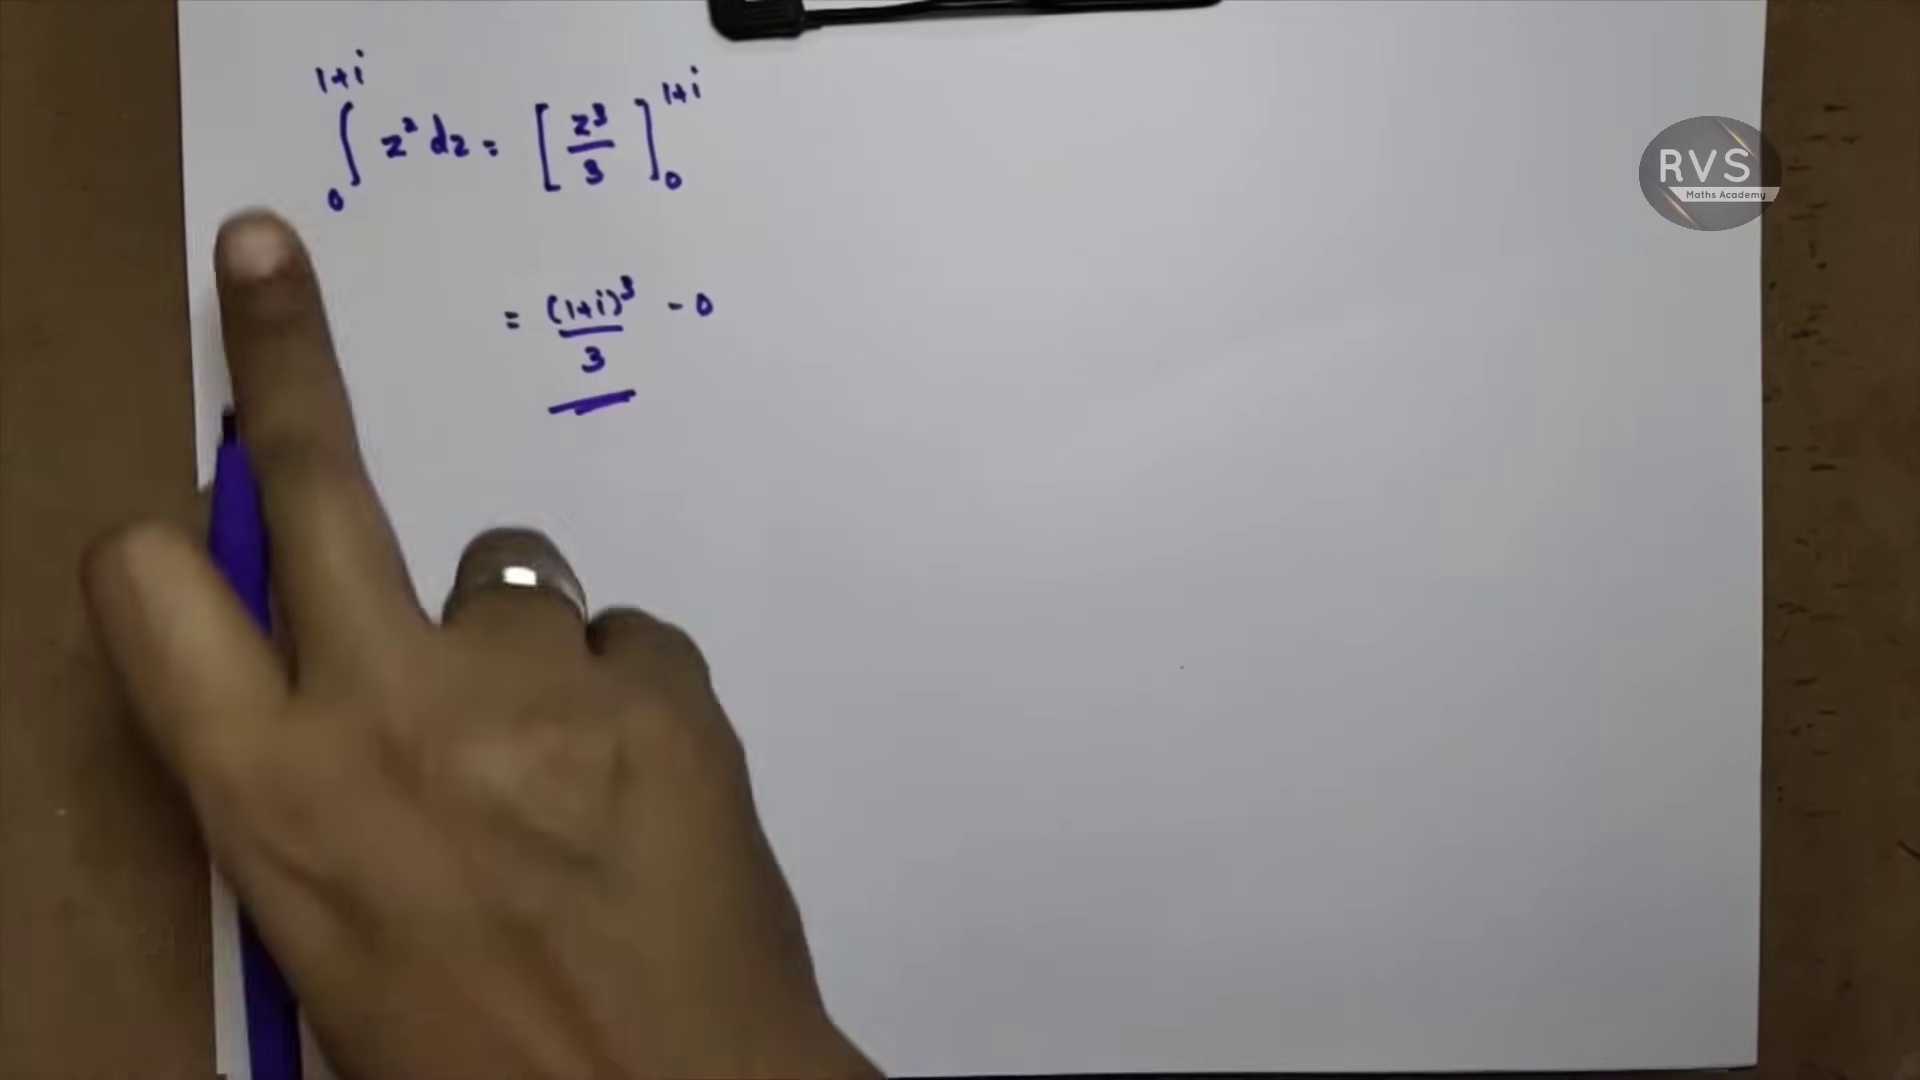 ∫₀¹⁺ⁱ z² dz = [z³/3]₀¹⁺ⁱ
= (1+i)³/3 - 0
RVS
Maths Academy